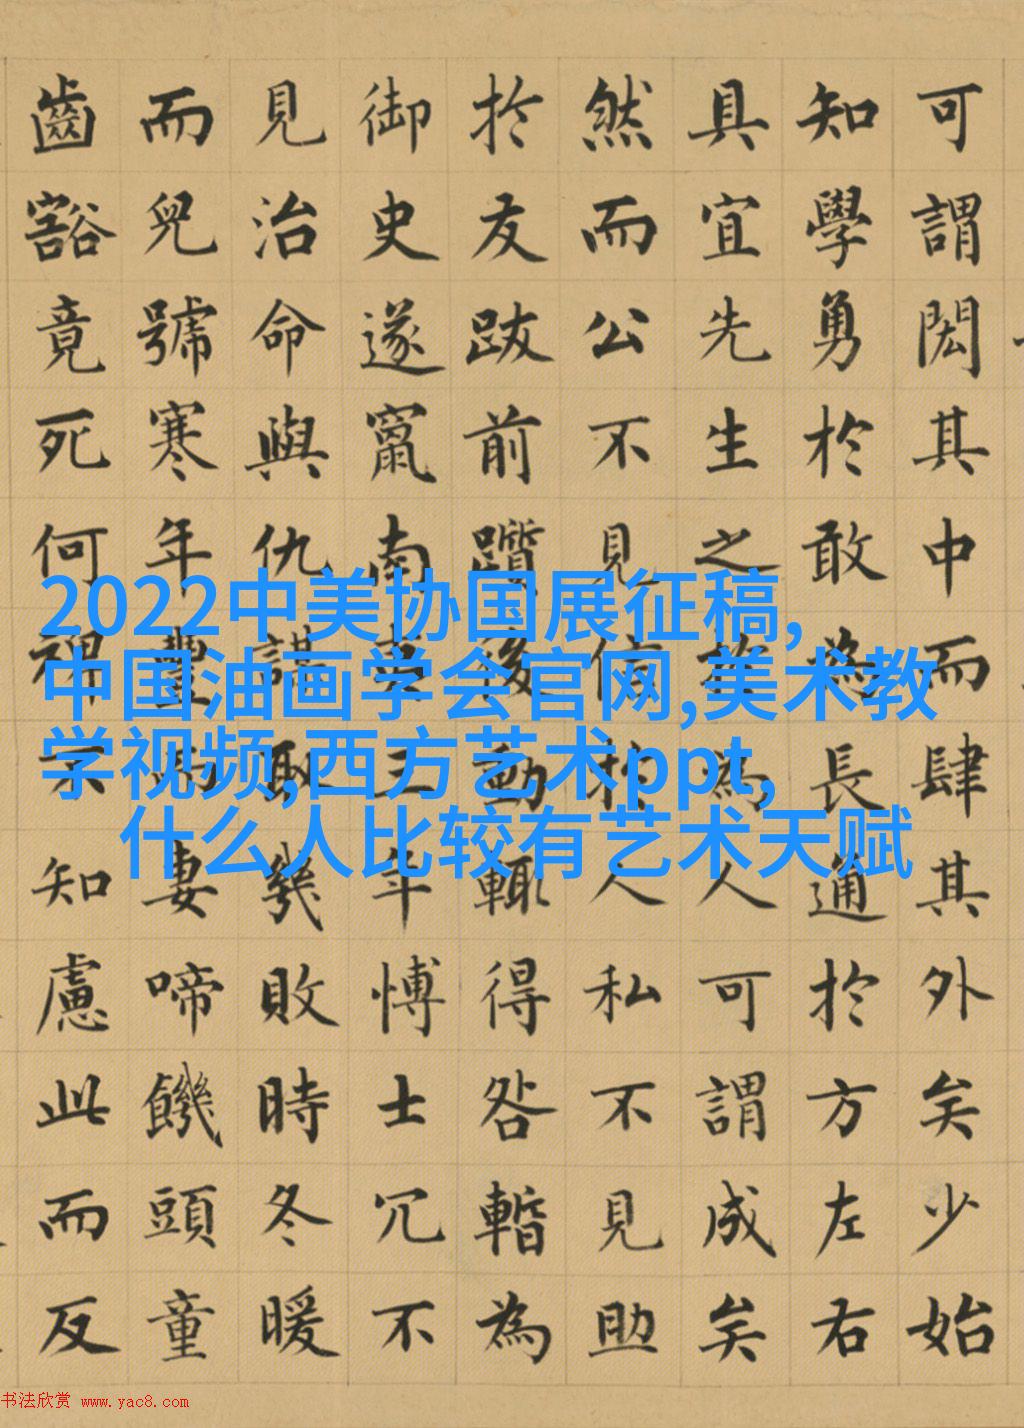 可謂閎其中而肆其外矣少始
知學勇於敢為長通於方左右
具宜先生之於為人可謂成矣
然而公不見信於人私不見助
於友跋前躓後動輒得咎暫為
御史遂竄南夷三年愽士冗不
見治命與仇謀取敗幾時冬暖
而兒號寒年豐而妻啼饑頭童
齒豁竟死何裨不知慮此而反
2022中美协国展征稿,
中国油画学会官网,美术教
学视频,西方艺术ppt,
什么人比较有艺术天赋
书法欣赏 www.yac8.com